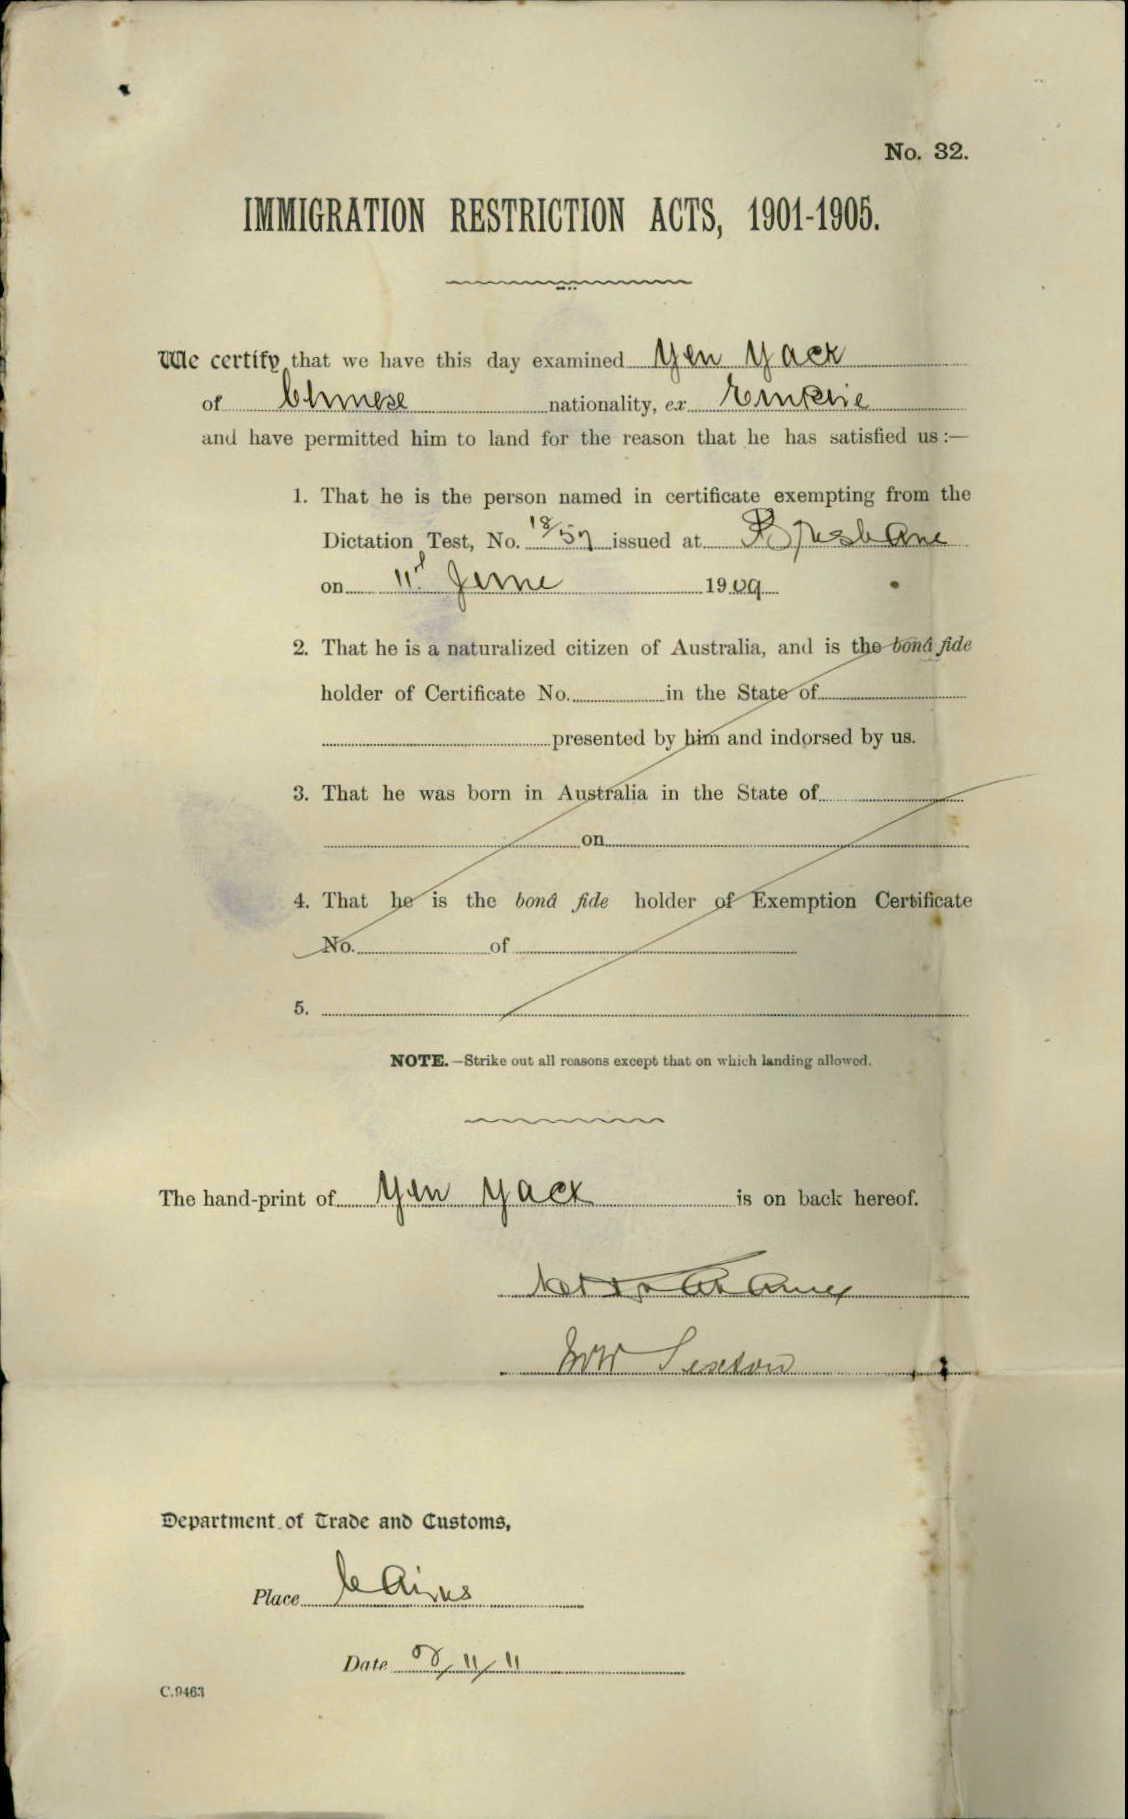 No. 32.
IMMIGRATION RESTRICTION ACTS, 1901-1905.
We certify that we have this day examined Yen Yack
of Chinese nationality, ex Empire
and have permitted him to land for the reason that he has satisfied us :—
1. That he is the person named in certificate exempting from the
Dictation Test, No. 18/57 issued at Brisbane
on 11th June 1909
2. That he is a naturalized citizen of Australia, and is the bonâ fide
holder of Certificate No. in the State of
presented by him and indorsed by us.
3. That he was born in Australia in the State of
on
4. That he is the bonâ fide holder of Exemption Certificate
No. of
5.
NOTE.—Strike out all reasons except that on which landing allowed.
The hand-print of Yen Yack is on back hereof.
Sexton
Department of Trade and Customs,
Place Cairns
Date 8/11/11
C.9463